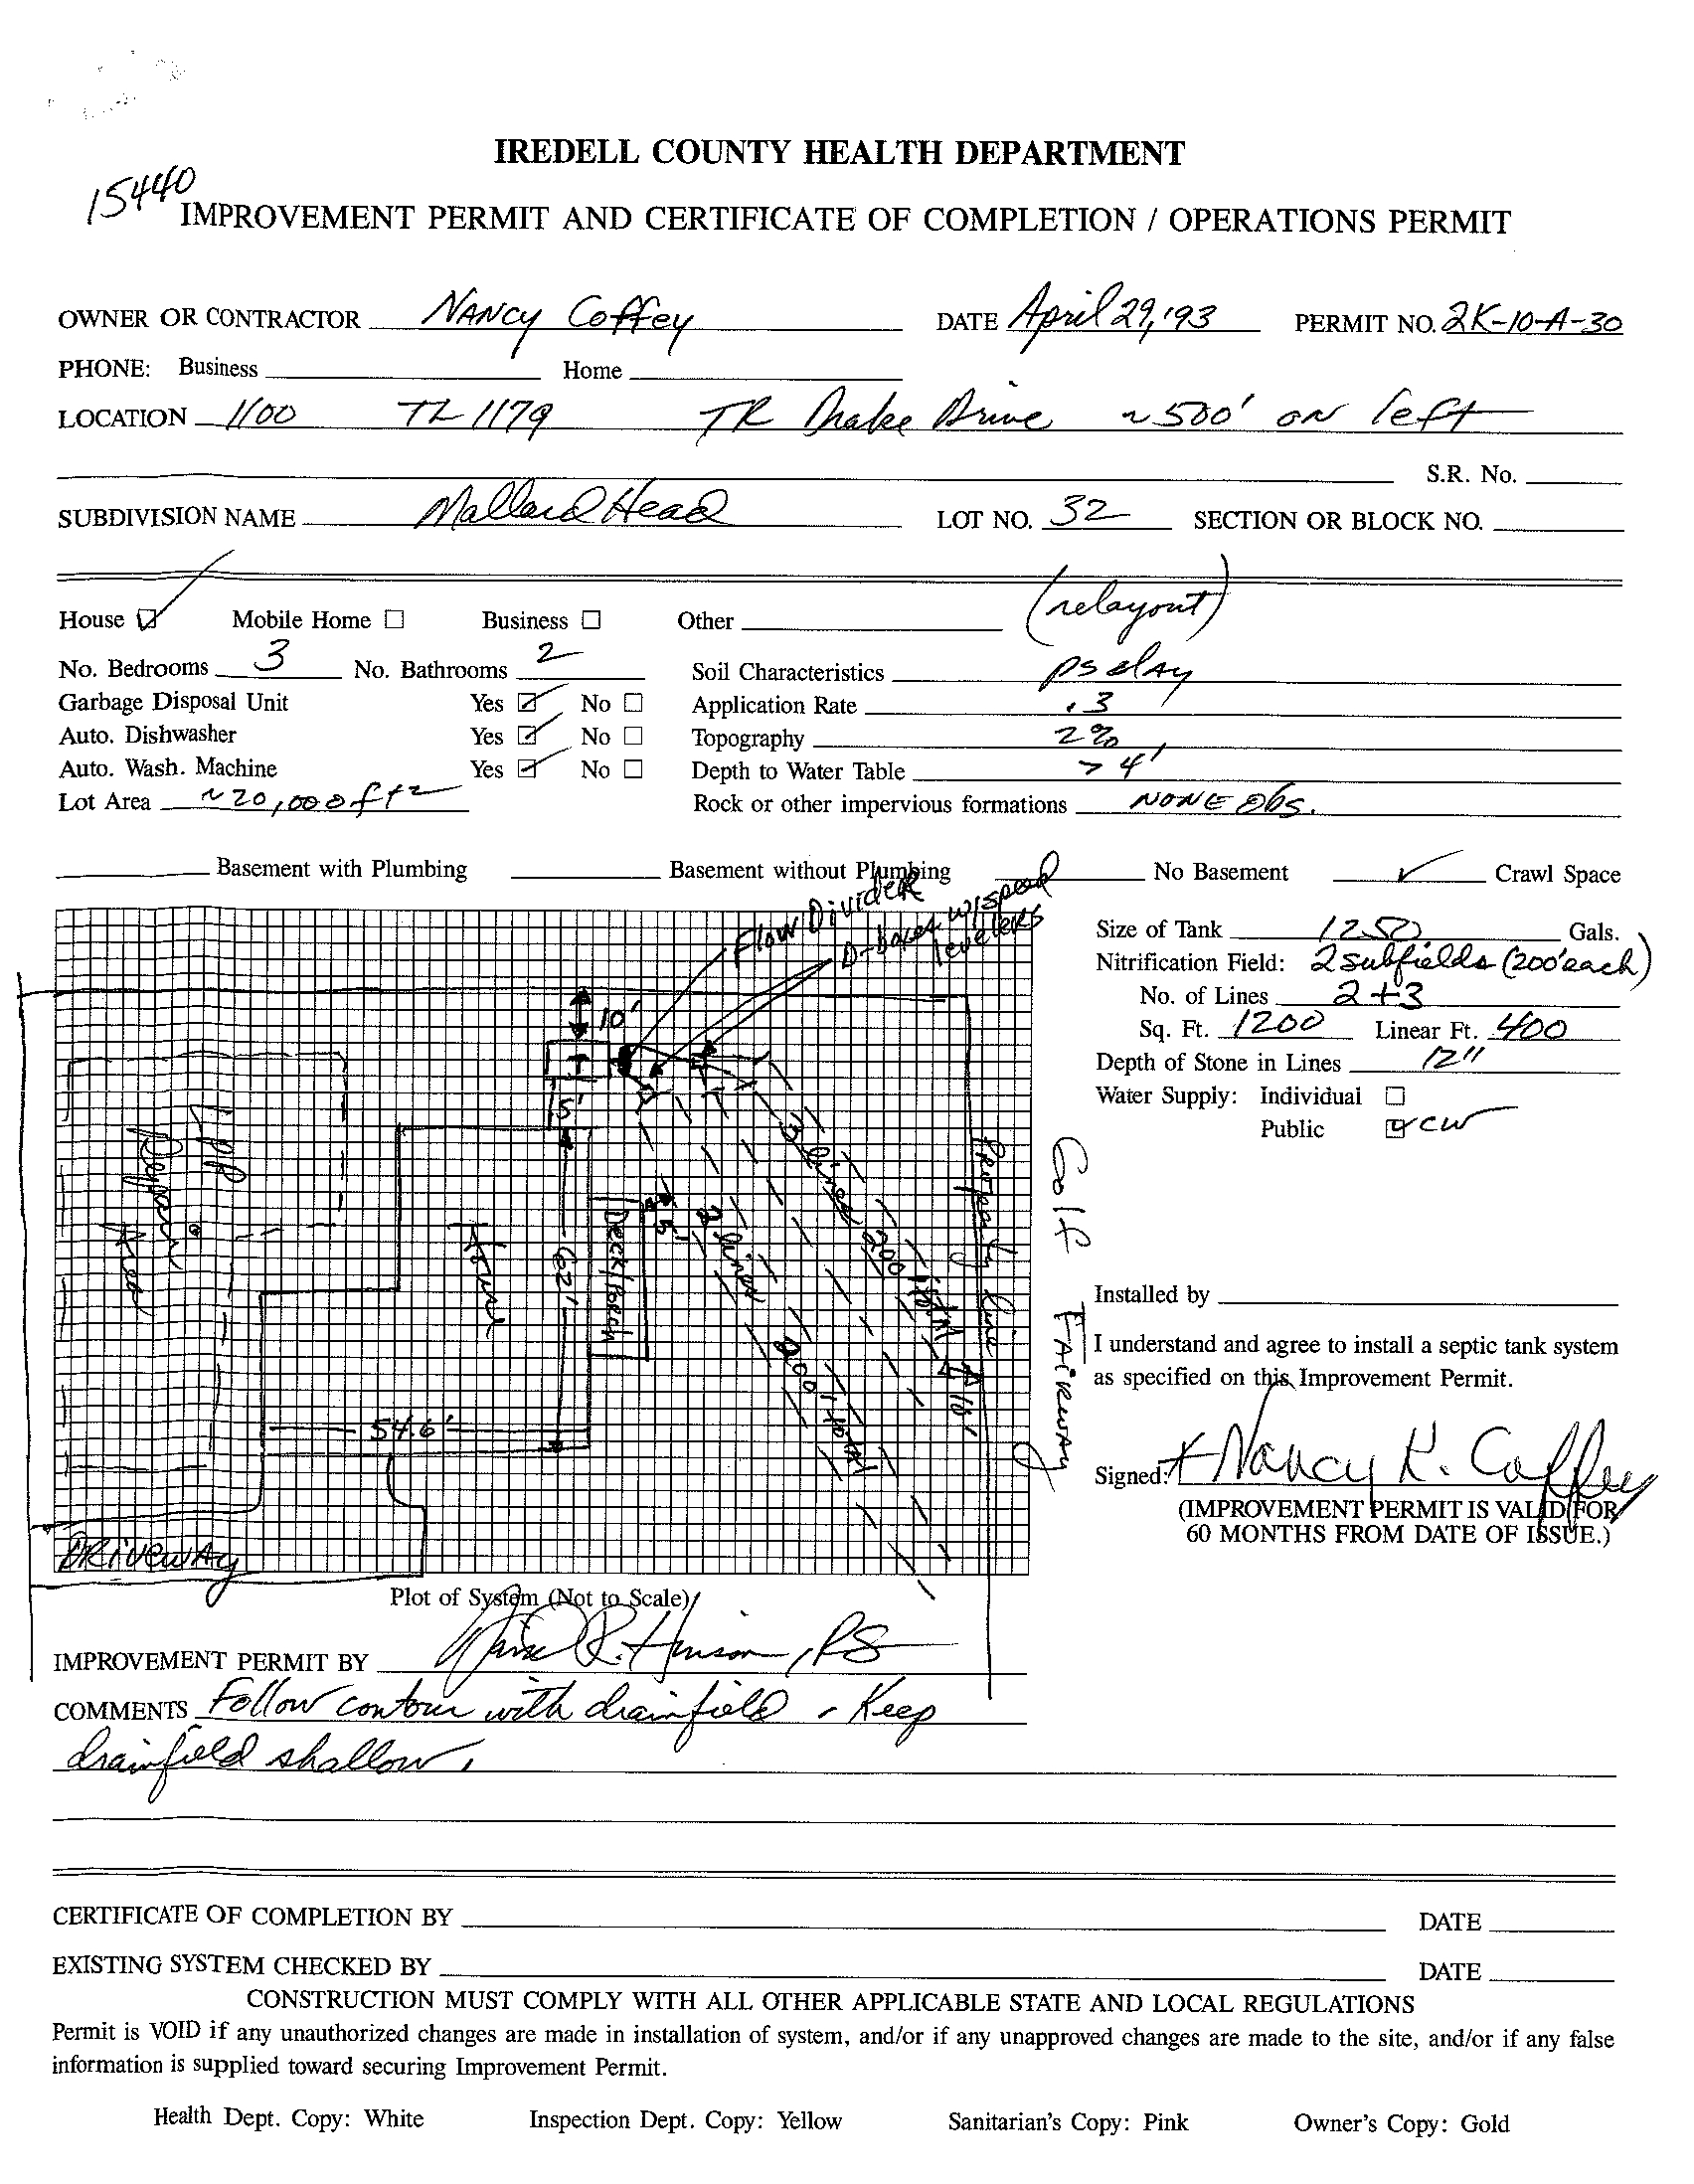 IREDELL COUNTY HEALTH DEPARTMENT
15440
IMPROVEMENT PERMIT AND CERTIFICATE OF COMPLETION / OPERATIONS PERMIT
OWNER OR CONTRACTOR Nancy Coffey DATE April 29, '93 PERMIT NO. 2K-10-A-30
PHONE: Business Home
LOCATION 1100 TL 1179 TR Drake Drive ~500' on left
S.R. No.
SUBDIVISION NAME Mallard Head LOT NO. 32 SECTION OR BLOCK NO.
House Mobile Home Business Other (relayout)
No. Bedrooms 3 No. Bathrooms 2 Soil Characteristics PS clay
Garbage Disposal Unit Yes No Application Rate .3
Auto. Dishwasher Yes No Topography 2%
Auto. Wash. Machine Yes No Depth to Water Table > 4'
Lot Area ~20,000 ft2 Rock or other impervious formations NONE Obs.
Basement with Plumbing Basement without Plumbing No Basement Crawl Space
Flow Divider
D-boxes w/speed levelers
Size of Tank 1250 Gals.
Nitrification Field: 2 subfields (200' each)
No. of Lines 2+3
Sq. Ft. 1200 Linear Ft. 400
Depth of Stone in Lines 12"
Water Supply: Individual
Public CW
10'
T
5'
LPP
Repair
Area
House
62'
Deck/Porch
5'
2 lines 200' total
3 lines 200' total
10'
Property line
Golf Fairway
54.6'
DRIVEWAY
Installed by
I understand and agree to install a septic tank system
as specified on this Improvement Permit.
Signed: x Nancy K. Coffey
(IMPROVEMENT PERMIT IS VALID FOR
60 MONTHS FROM DATE OF ISSUE.)
Plot of System (Not to Scale)
IMPROVEMENT PERMIT BY R. Hinson, RS
COMMENTS Follow contour with drainfield - Keep
drainfield shallow.
CERTIFICATE OF COMPLETION BY DATE
EXISTING SYSTEM CHECKED BY DATE
CONSTRUCTION MUST COMPLY WITH ALL OTHER APPLICABLE STATE AND LOCAL REGULATIONS
Permit is VOID if any unauthorized changes are made in installation of system, and/or if any unapproved changes are made to the site, and/or if any false
information is supplied toward securing Improvement Permit.
Health Dept. Copy: White Inspection Dept. Copy: Yellow Sanitarian's Copy: Pink Owner's Copy: Gold